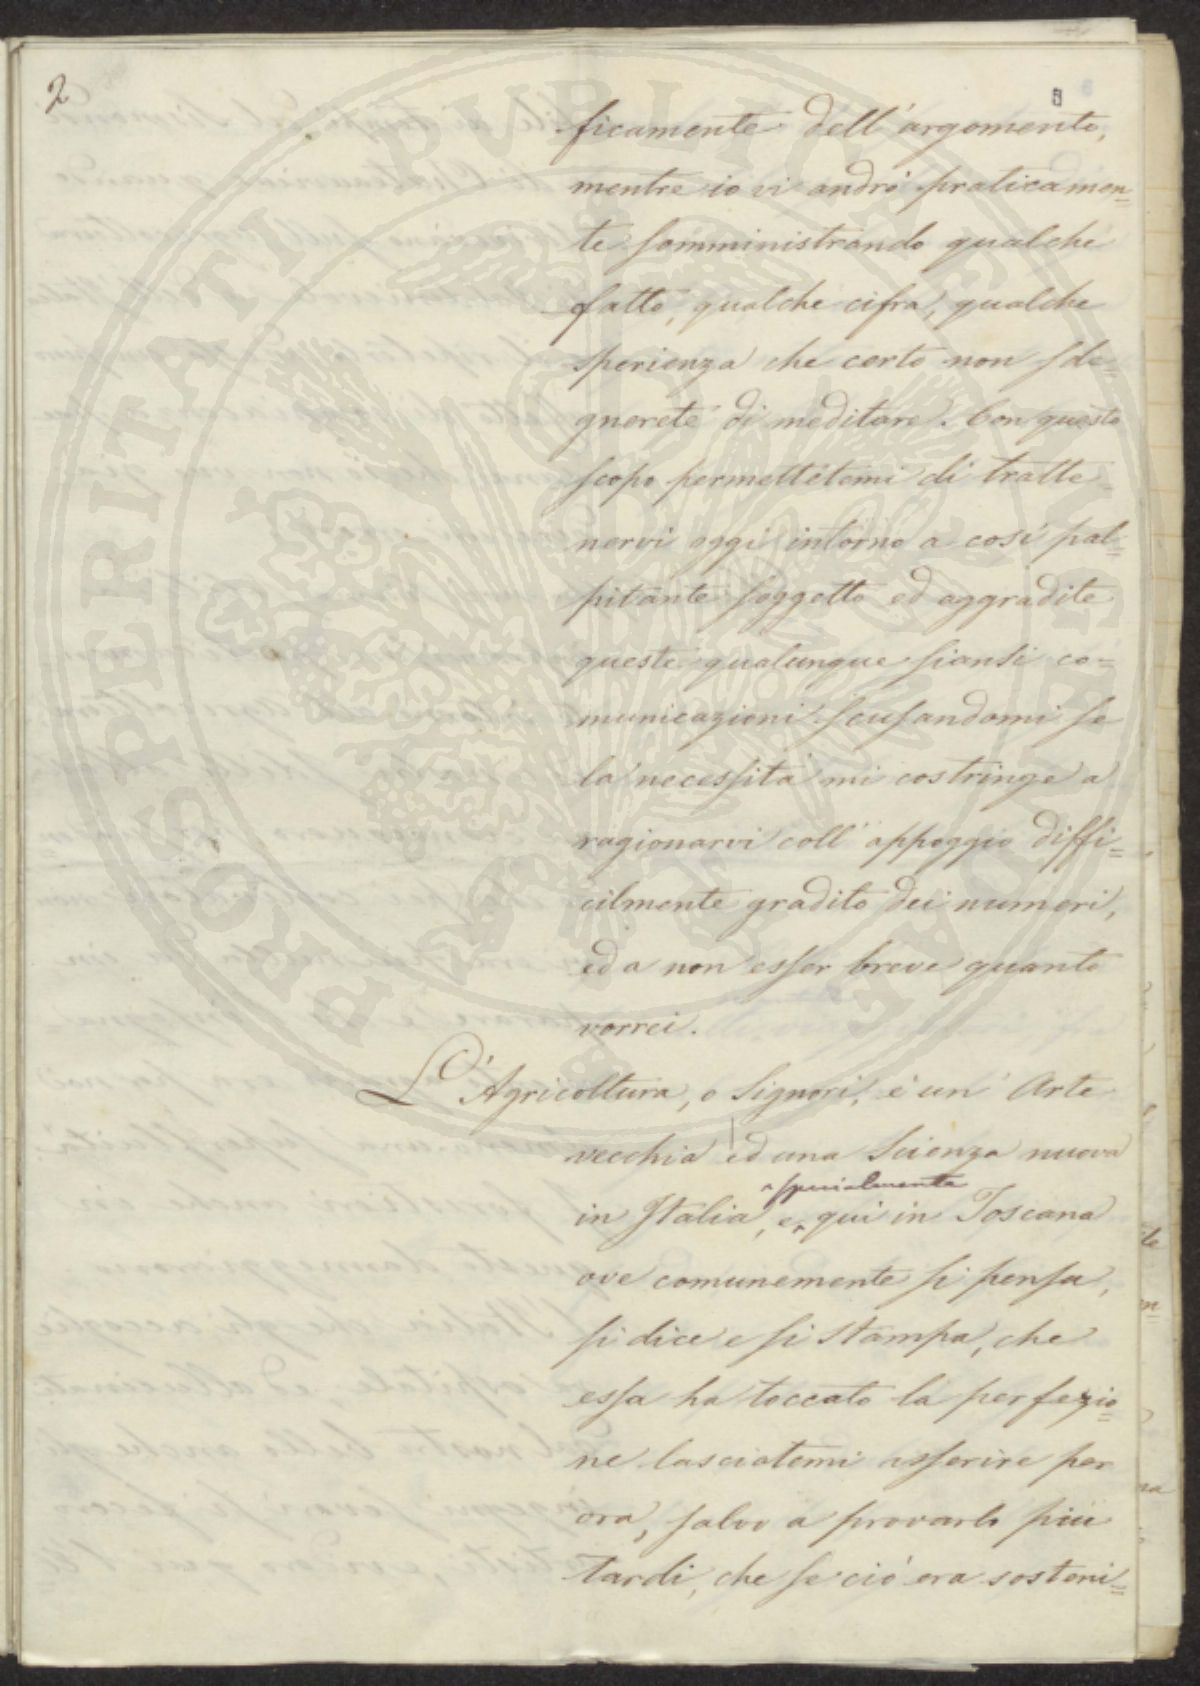 2
ficamente dell'argomento,
mentre io vi andrò praticamen=
te somministrando qualche
fatto, qualche cifra, qualche
sperienza che certo non sde=
gnerete di meditare. Con questo
scopo permettetemi di tratte=
nervi oggi intorno a così pal=
pitante soggetto ed aggradite
queste qualunque siansi co=
municazioni scusandomi se
la necessità mi costringe a
ragionarvi coll'appoggio diffi=
cilmente gradito dei numeri,
ed a non esser breve quanto
vorrei.
L'Agricoltura, o Signori, è un'Arte
vecchia ed una Scienza nuova
specialmente
in Italia, e, qui in Toscana
ove comunemente si pensa,
si dice e si stampa, che
essa ha toccato la perfezio=
ne lasciatemi asserire per
ora, salvo a provarlo più
tardi, che se ciò era sosteni=
PROSPERITATI PUBLICAE AUGENDAE